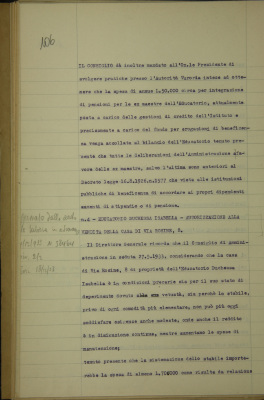 106
IL CONSIGLIO dà inoltre mandato all'On.le Presidente di
svolgere pratiche presso l'Autorità Tutoria intese ad otte-
nere che la spesa di annue L.30.000 circa per integrazione
di pensioni per le ex maestre dell'Educatorio, attualmente
posta a carico delle gestioni di credito dell'Istituto e
precisamente a carico del fondo per erogazioni di beneficen-
za venga annullata al bilancio dell'Educatorio tenuto pre-
sente che tutte le deliberazioni dell'Amministrazione
delle ex maestre, salvo l'ultima sono anteriori al
Decreto legge 26.2.1928,n.1977 che vieta alle istituzioni
pubbliche di beneficenza di accordare ai propri dipendenti
aumenti di stipendio e di pensione.
o.d - EDUCATORIO DUCHESSA ISABELLA - AUTORIZZAZIONE ALLA
VENDITA DELLA CASA DI VIA ROSINE,
Il Direttore Generale ricorda che il Consiglio di Ammini-
strazione in seduta 27.3.1934, considerando che la casa
di Via Rosine, 8 di proprietà dell'Educatorio Duchessa
Isabella è in condizioni precarie sia per il suo stato di
deperimento dovuto alla sua vetustà, sia perché lo stabile,
privo di ogni comodità più elementare, non può più oggi
soddisfare esigenze anche modeste, onde anche il reddito
è in diminuzione continua, mentre aumentano le spese di
manutenzione;
tenuto presente che la sistemazione dello stabile importe-
rebbe la spesa di almeno L. come risulta da relazione